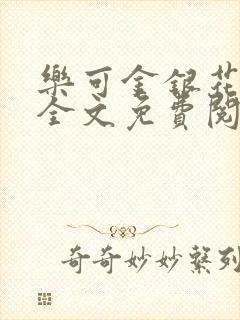 樂可金銀花
全文免費閱
奇奇妙妙繫列